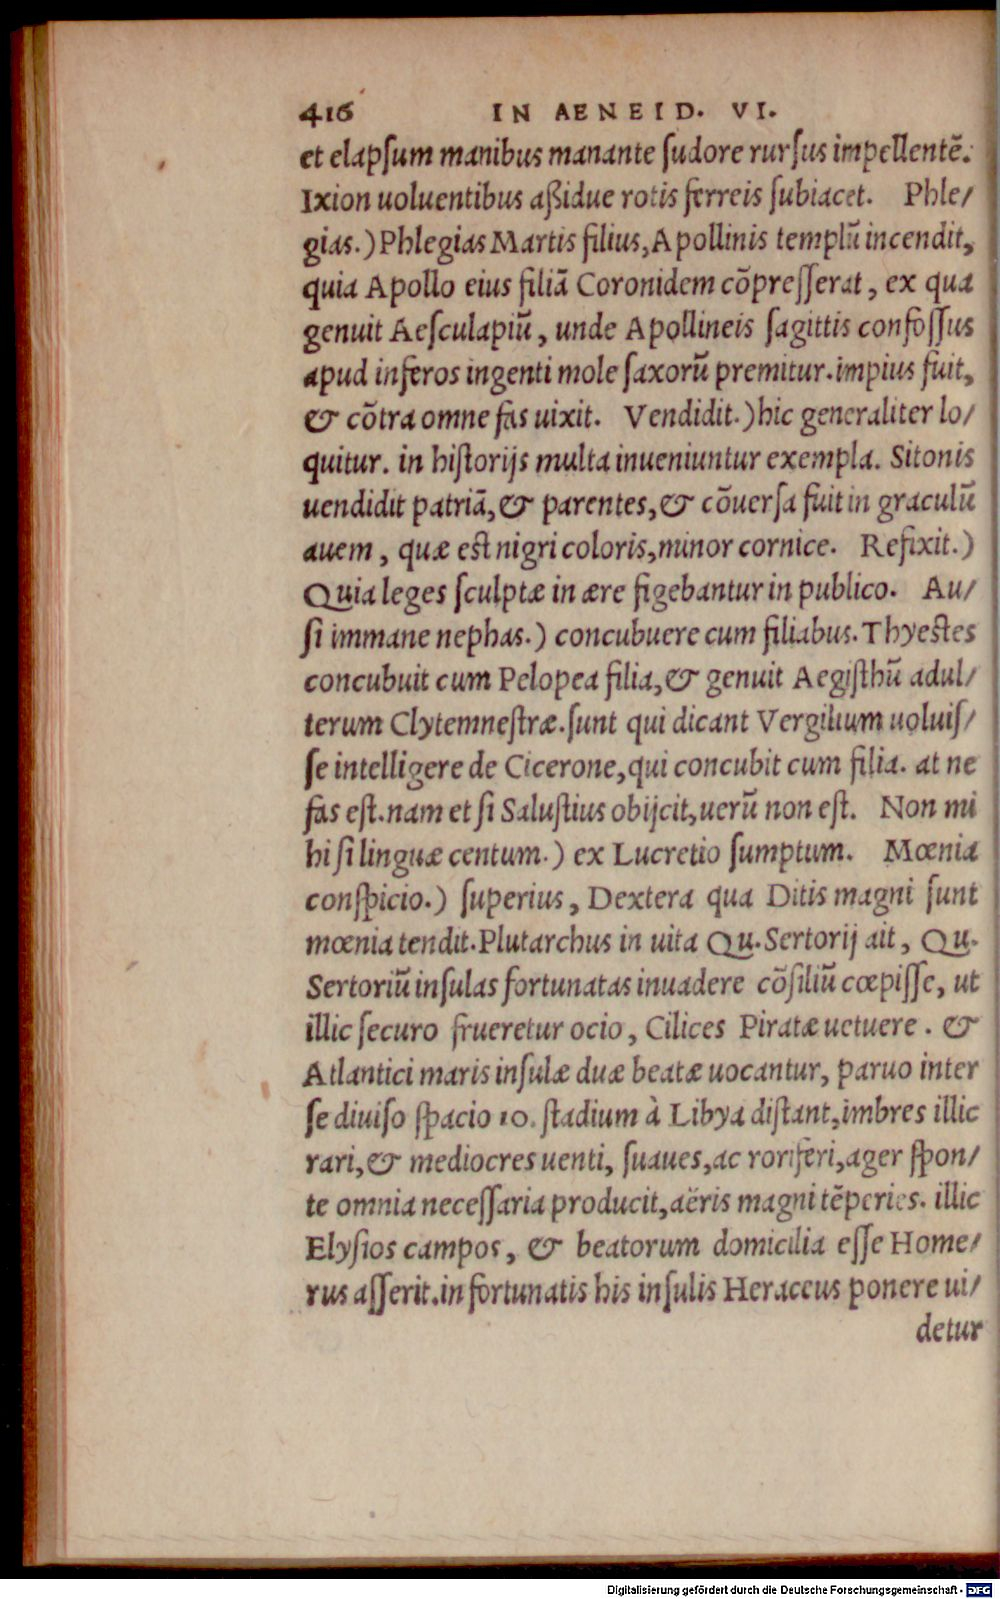 416 IN AENEID. VI.
et elapſum manibus manante ſudore rurſus impellentẽ.
Ixion uoluentibus aßidue rotis ferreis ſubiacet. Phle/
gias.) Phlegias Martis filius, Apollinis templũ incendit,
quia Apollo eius filiã Coronidem cõpreſſerat, ex qua
genuit Aeſculapiũ, unde Apollineis ſagittis confoſſus
apud inferos ingenti mole ſaxorũ premitur. impius fuit,
& cõtra omne fas uixit. Vendidit.) hic generaliter lo/
quitur. in hiſtorijs multa inueniuntur exempla. Sitonis
uendidit patriã, & parentes, & cõuerſa fuit in graculũ
auem, quæ est nigri coloris, minor cornice. Refixit.)
Quia leges ſculptæ in ære figebantur in publico. Au/
ſi immane nephas.) concubuere cum filiabus. Thyestes
concubuit cum Pelopea filia, & genuit Aegiſthũ adul/
terum Clytemneſtræ. ſunt qui dicant Vergilium uoluiſ/
ſe intelligere de Cicerone, qui concubit cum filia. at ne
fas eſt. nam et ſi Saluſtius obijcit, uerũ non eſt. Non mi
hi ſi linguæ centum.) ex Lucretio ſumptum. Mœnia
conſpicio.) ſuperius, Dextera qua Ditis magni ſunt
mœnia tendit. Plutarchus in uita Qu. Sertorij ait, Qu.
Sertoriũ inſulas fortunatas inuadere cõſiliũ cœpiſſe, ut
illic ſecuro frueretur ocio, Cilices Piratæ uetuere. &
Atlantici maris inſulæ duæ beatæ uocantur, paruo inter
ſe diuiſo ſpacio 10. ſtadium à Libya diſtant, imbres illic
rari, & mediocres uenti, ſuaues, ac roriferi, ager ſpon/
te omnia neceſſaria producit, aëris magni tẽperies. illic
Elyſios campos, & beatorum domicilia eſſe Home/
rus aſſerit. in fortunatis his inſulis Heraceus ponere ui/
detur
Digitalisierung gefördert durch die Deutsche Forschungsgemeinschaft - DFG